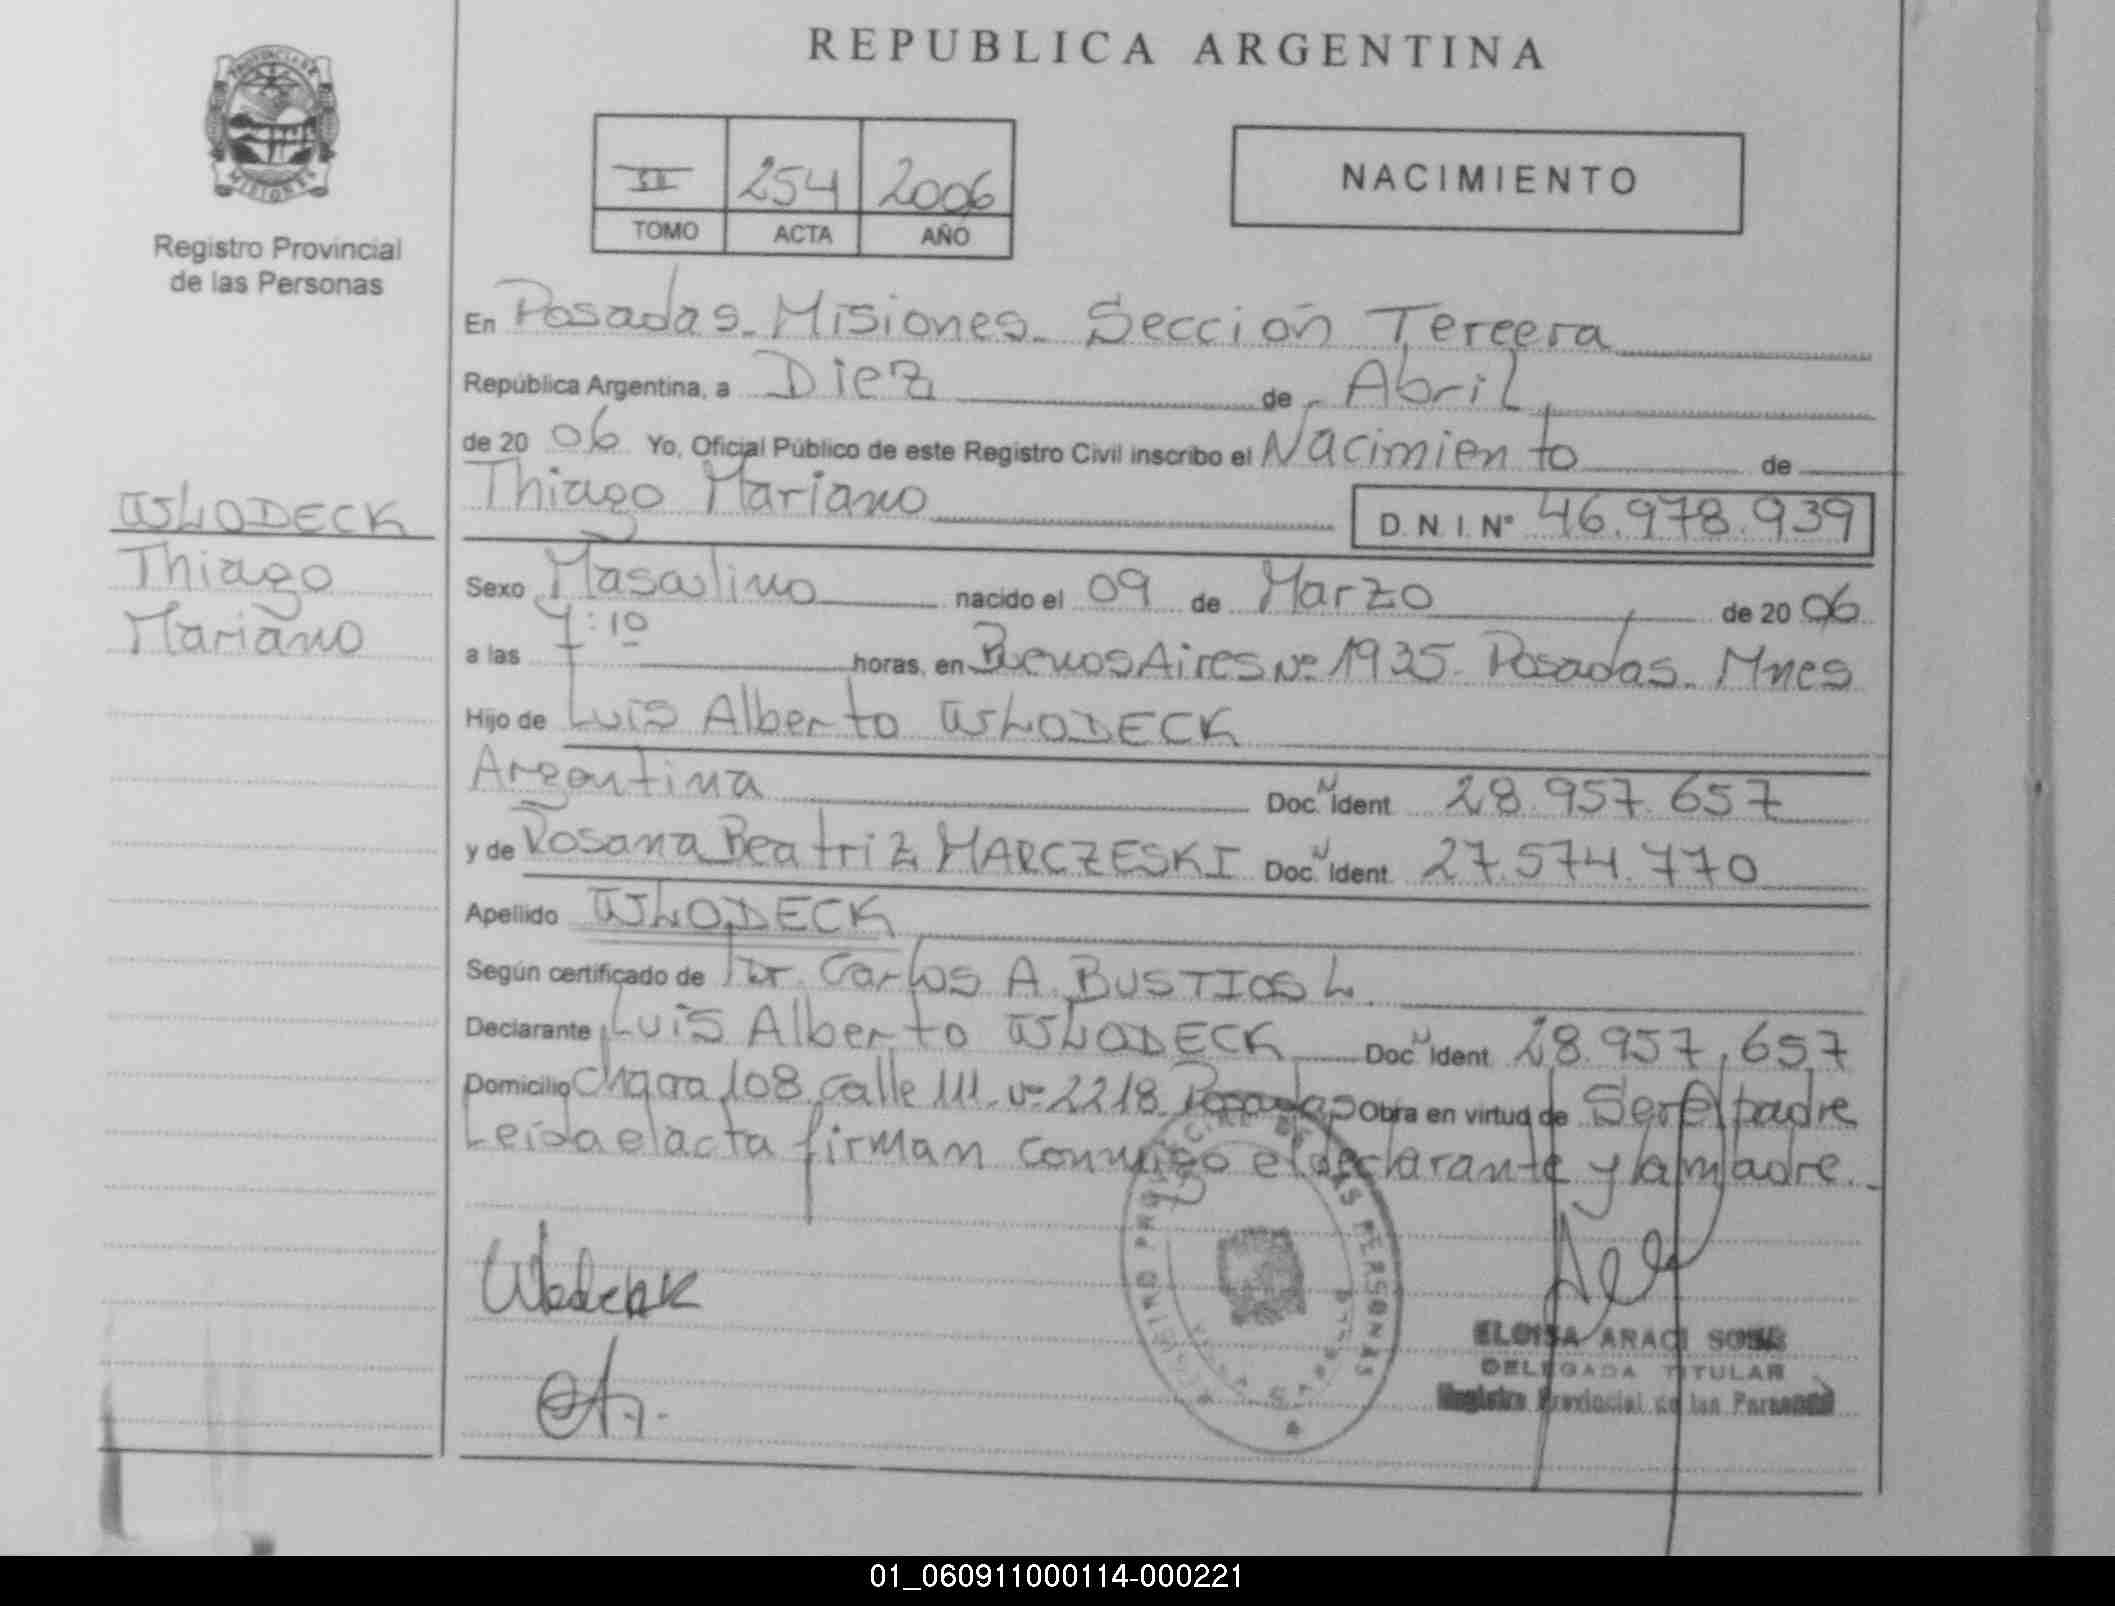 REPUBLICA ARGENTINA
PROVINCIA DE
MISIONES
Registro Provincial
de las Personas
254 2006
TOMO ACTA AÑO
NACIMIENTO
En Posadas - Misiones - Sección Tercera
República Argentina, a Diez de Abril
de 20 06 Yo, Oficial Público de este Registro Civil inscribo el Nacimiento de
Thiago Mariano D. N. I. Nº 46.978.939
WLODECK
Thiago
Mariano
Sexo Masculino nacido el 09 de Marzo de 20 06
a las 7:10 horas, en Buenos Aires Nº 1935 - Posadas - Mnes
Hijo de Luis Alberto WLODECK
Argentina Doc. N Ident 28.957.657
y de Rosana Beatriz MARCZESKI Doc. N Ident. 27.574.770
Apellido WLODECK
Según certificado de Dr. Carlos A. BUSTIOS L.
Declarante Luis Alberto WLODECK Doc N Ident. 28.957.657
Domicilio Chacra 108 calle 111 - nº 2218 Posadas Obra en virtud de Ser el padre
Leída el acta firman conmigo el declarante y la madre. -
Wlodeck
ELOISA ARACI SOSA
DELEGADA TITULAR
Registro Provincial de las Personas
01_060911000114-000221